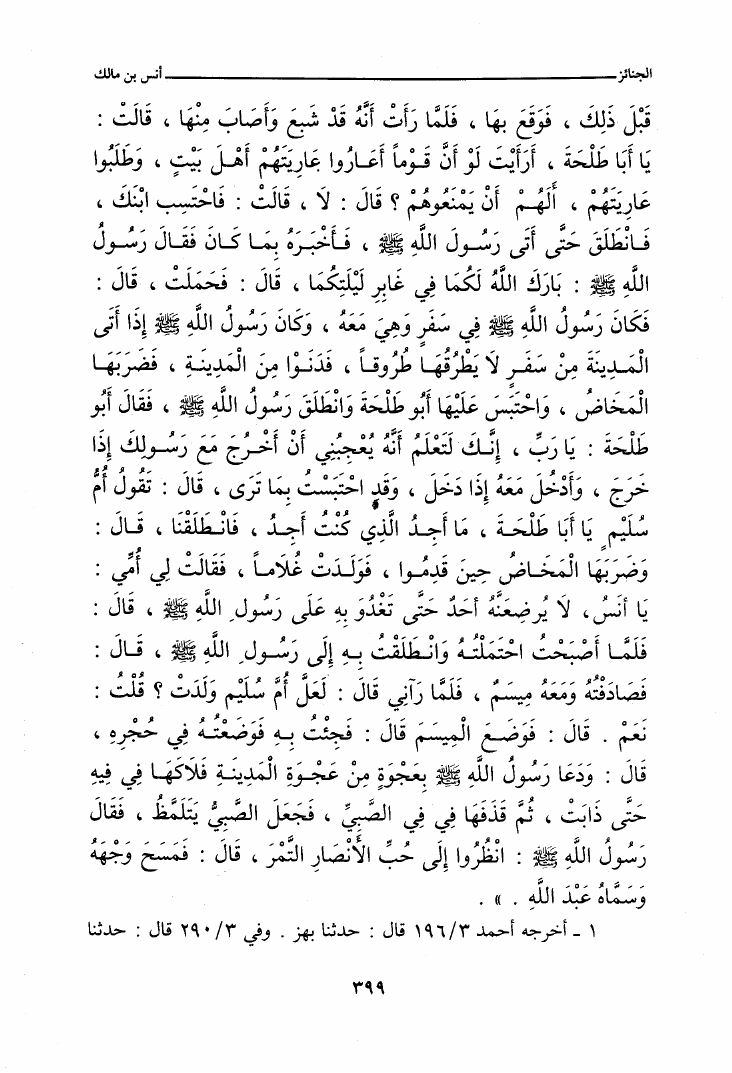 الجنائز ـــــــ أنس بن مالك
قَبْلَ ذٰلِكَ ، فَوَقَعَ بِهَا ، فَلَمَّا رَأَتْ أَنَّهُ قَدْ شَبِعَ وَأَصَابَ مِنْهَا ، قَالَتْ :
يَا أَبَا طَلْحَةَ ، أَرَأَيْتَ لَوْ أَنَّ قَوْماً أَعَارُوا عَارِيَتَهُمْ أَهْلَ بَيْتٍ ، وَطَلَبُوا
عَارِيَتَهُمْ ، أَلَهُمْ أَنْ يَمْنَعُوهُمْ ؟ قَالَ : لَا ، قَالَتْ : فَاحْتَسِبِ ابْنَكَ ،
فَانْطَلَقَ حَتَّى أَتَى رَسُولَ اللَّهِ ﷺ ، فَأَخْبَرَهُ بِمَا كَانَ فَقَالَ رَسُولُ
اللَّهِ ﷺ : بَارَكَ اللَّهُ لَكُمَا فِي غَابِرِ لَيْلَتِكُمَا ، قَالَ : فَحَمَلَتْ ، قَالَ :
فَكَانَ رَسُولُ اللَّهِ ﷺ فِي سَفَرٍ وَهِيَ مَعَهُ ، وَكَانَ رَسُولُ اللَّهِ ﷺ إِذَا أَتَى
الْمَدِينَةَ مِنْ سَفَرٍ لَا يَطْرُقُهَا طُرُوقاً ، فَدَنَوْا مِنَ الْمَدِينَةِ ، فَضَرَبَهَا
الْمَخَاضُ ، وَاحْتَبَسَ عَلَيْهَا أَبُو طَلْحَةَ وَانْطَلَقَ رَسُولُ اللَّهِ ﷺ ، فَقَالَ أَبُو
طَلْحَةَ : يَا رَبِّ ، إِنَّكَ لَتَعْلَمُ أَنَّهُ يُعْجِبُنِي أَنْ أَخْرُجَ مَعَ رَسُولِكَ إِذَا
خَرَجَ ، وَأَدْخُلَ مَعَهُ إِذَا دَخَلَ ، وَقَدِ احْتَبَسْتُ بِمَا تَرَى ، قَالَ : تَقُولُ أُمُّ
سُلَيْمٍ يَا أَبَا طَلْحَةَ ، مَا أَجِدُ الَّذِي كُنْتُ أَجِدُ ، فَانْطَلَقْنَا ، قَالَ :
وَضَرَبَهَا الْمَخَاضُ حِينَ قَدِمُوا ، فَوَلَدَتْ غُلَاماً ، فَقَالَتْ لِي أُمِّي :
يَا أَنَسُ، لَا يُرْضِعَنَّهُ أَحَدٌ حَتَّى تَغْدُوَ بِهِ عَلَى رَسُولِ اللَّهِ ﷺ ، قَالَ :
فَلَمَّا أَصْبَحْتُ احْتَمَلْتُهُ وَانْطَلَقْتُ بِهِ إِلَى رَسُولِ اللَّهِ ﷺ ، قَالَ :
فَصَادَفْتُهُ وَمَعَهُ مِيسَمٌ ، فَلَمَّا رَآنِي قَالَ : لَعَلَّ أُمَّ سُلَيْمٍ وَلَدَتْ ؟ قُلْتُ :
نَعَمْ . قَالَ : فَوَضَعَ الْمِيسَمَ قَالَ : فَجِئْتُ بِهِ فَوَضَعْتُهُ فِي حُجْرِهِ ،
قَالَ : وَدَعَا رَسُولُ اللَّهِ ﷺ بِعَجْوَةٍ مِنْ عَجْوَةِ الْمَدِينَةِ فَلَاكَهَا فِي فِيهِ
حَتَّى ذَابَتْ ، ثُمَّ قَذَفَهَا فِي فِي الصَّبِيِّ ، فَجَعَلَ الصَّبِيُّ يَتَلَمَّظُ ، فَقَالَ
رَسُولُ اللَّهِ ﷺ : انْظُرُوا إِلَى حُبِّ الأَنْصَارِ التَّمْرَ ، قَالَ : فَمَسَحَ وَجْهَهُ
وَسَمَّاهُ عَبْدَ اللَّهِ . » .
١ ـ أخرجه أحمد ١٩٦/٣ قال : حدثنا بهز . وفي ٢٩٠/٣ قال : حدثنا
٣٩٩